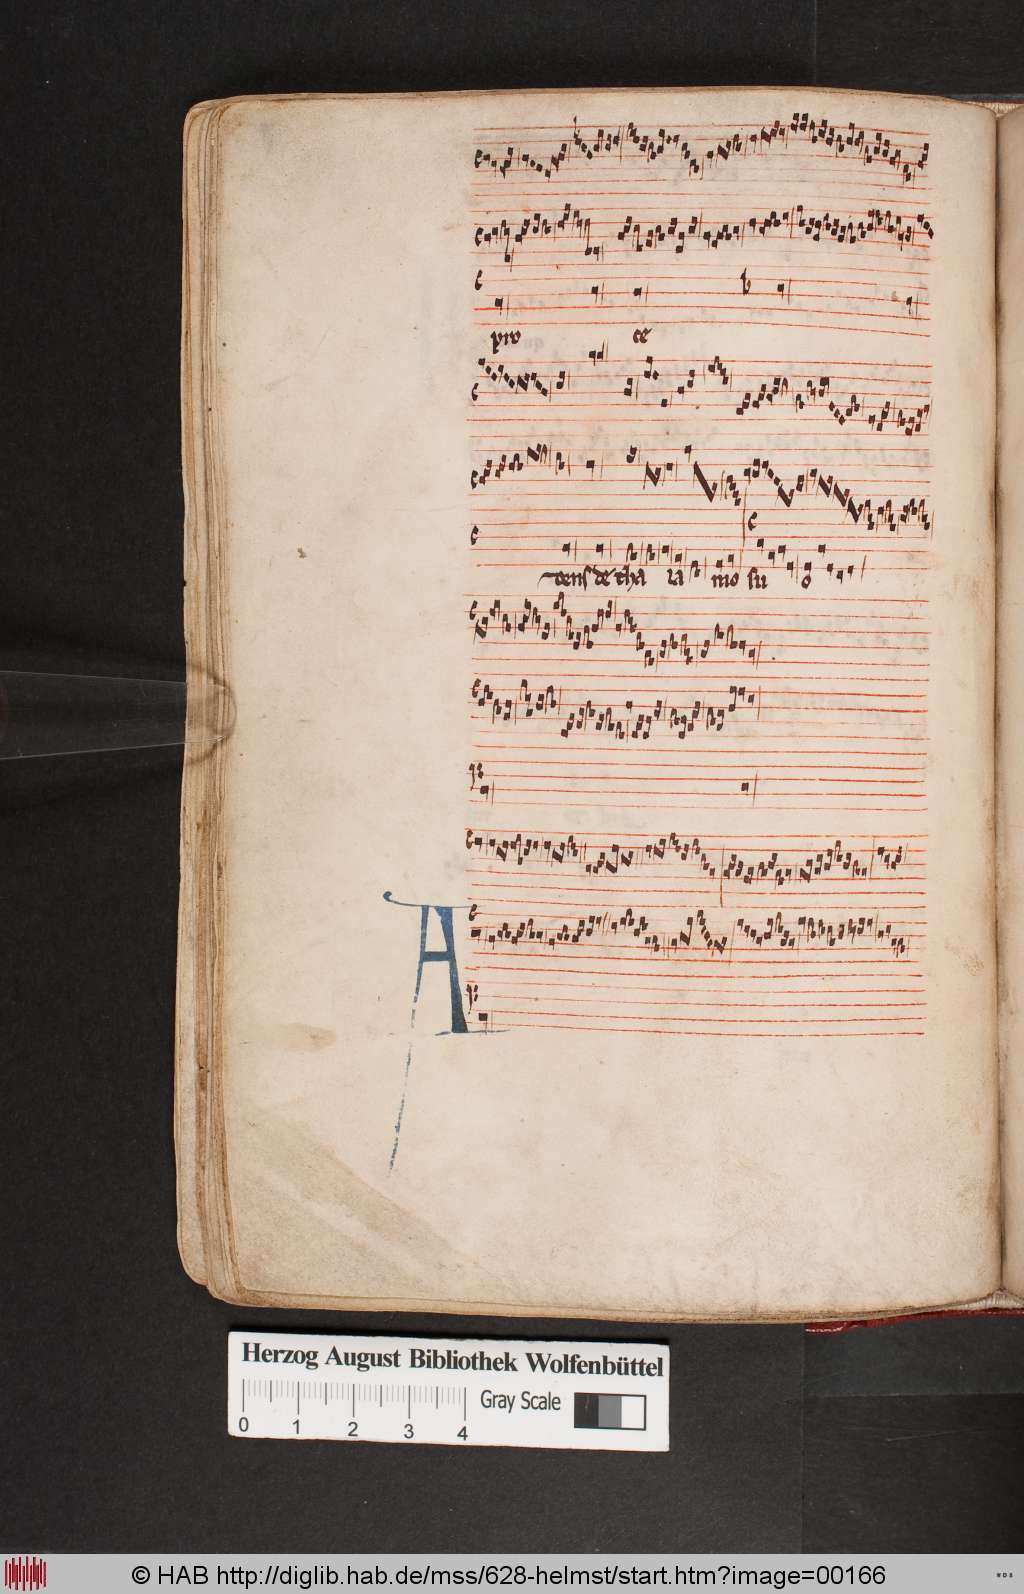 pro ce
dens de tha la mo su o
A
Herzog August Bibliothek Wolfenbüttel
Gray Scale
0 1 2 3 4
© HAB http://diglib.hab.de/mss/628-helmst/start.htm?image=00166